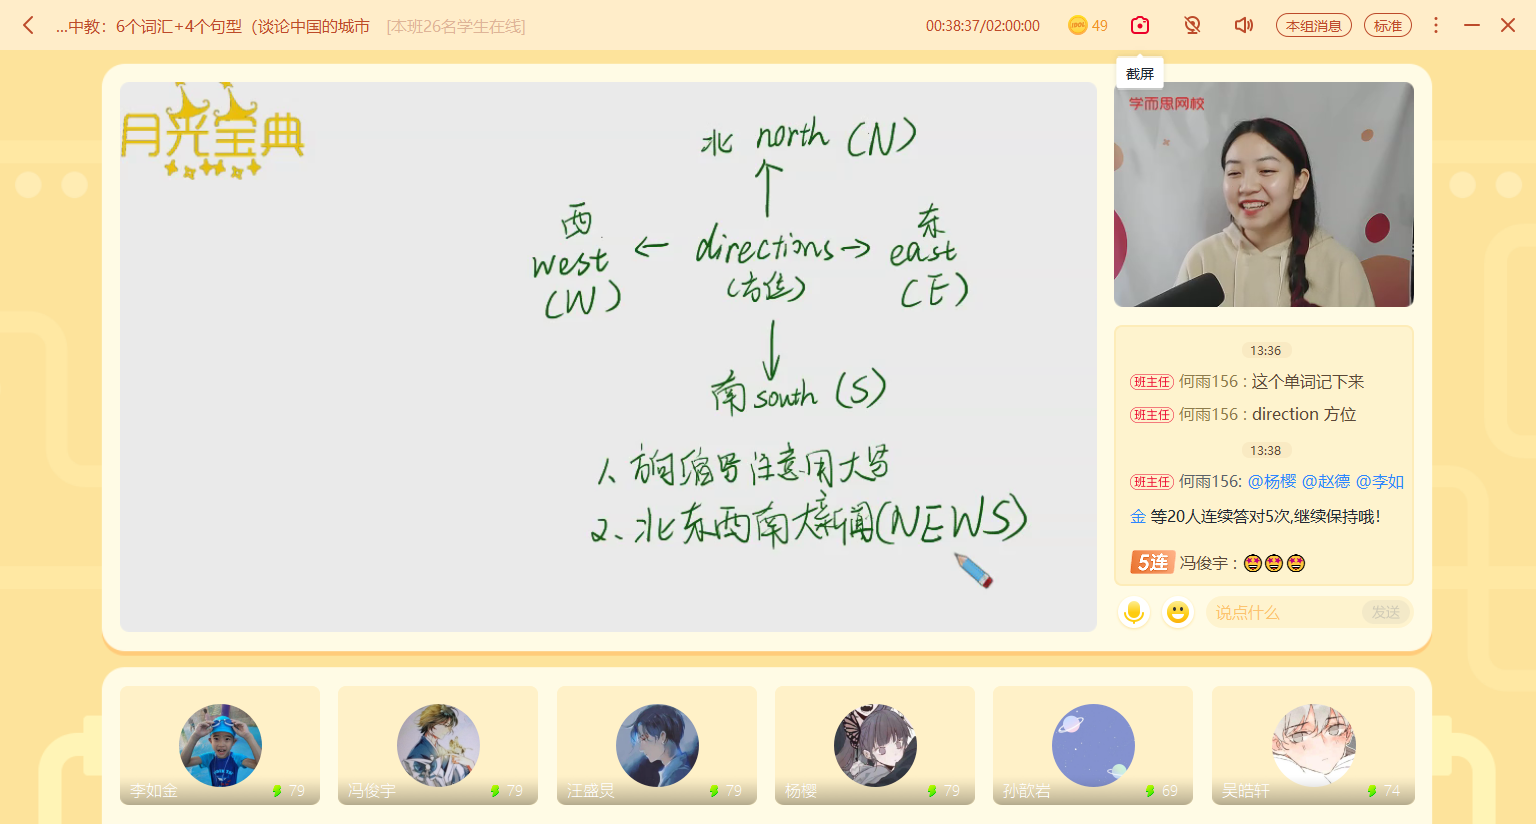 ...中教：6个词汇+4个句型（谈论中国的城市
[本班26名学生在线]
00:38:37/02:00:00
100%
49
本组消息
标准
截屏
月光宝典
学而思网校
北 north (N)
西
west
(W)
directions
(方位)
东
east
(E)
南 south (S)
1、方向缩写注意用大写
2、北东西南大新闻(NEWS)
13:36
班主任 何雨156 : 这个单词记下来
班主任 何雨156 : direction 方位
13:38
班主任 何雨156: @杨樱 @赵德 @李如
金 等20人连续答对5次,继续保持哦!
5连 冯俊宇 :
说点什么
发送
李如金 79
冯俊宇 79
汪盛炅 79
杨樱 79
孙歆岩 69
吴皓轩 74